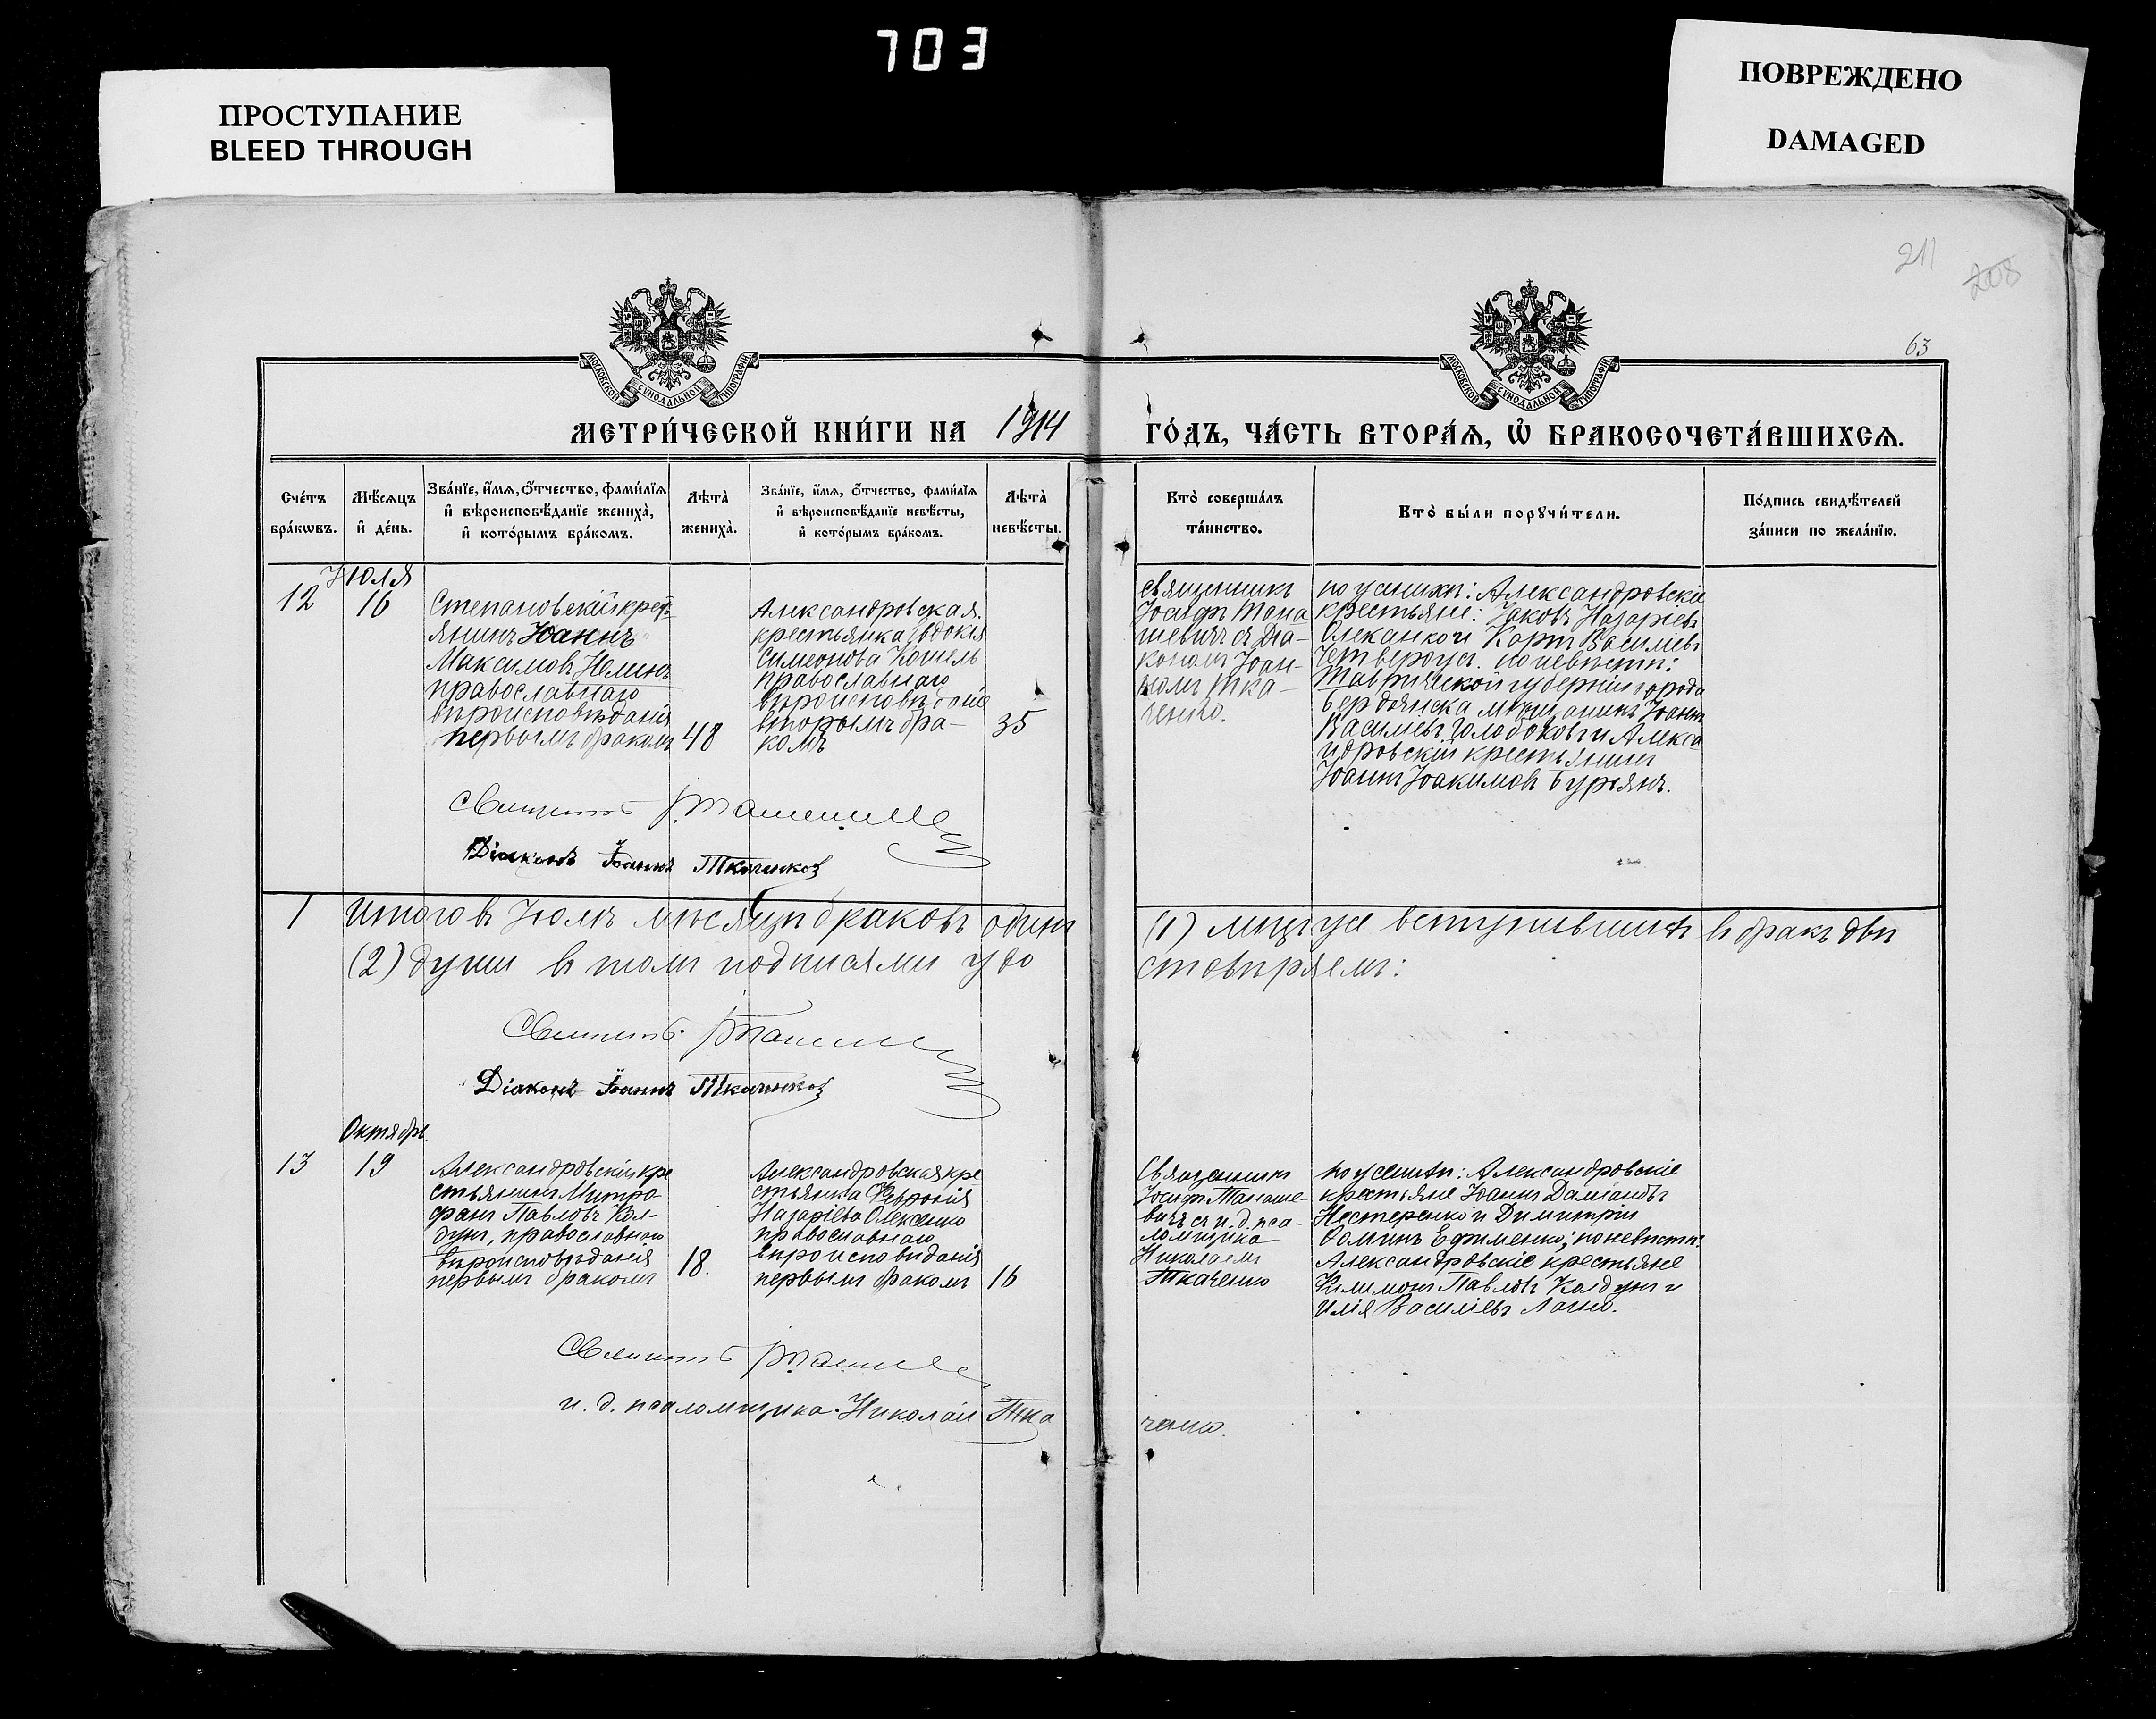 703
ПРОСТУПАНИЕ
BLEED THROUGH
ПОВРЕЖДЕНО
DAMAGED
211
208
63
МОСКОВСКОЙ СѴНОДАЛЬНОЙ ТИПОГРАФІИ
МОСКОВСКОЙ СѴНОДАЛЬНОЙ ТИПОГРАФІИ
МЕТРИ́ЧЕСКОЙ КНИ́ГИ НА 1914
ГО́ДЪ, ЧА́СТЬ ВТОРА́Ѧ, Ѽ БРАКОСОЧЕТА́ВШИХСѦ.
Сче́тъ
бра́кѡвъ.
Мѣ́сѧцъ
и҆ де́нь.
Зва́нїе, и҆́мѧ, ѻ҆́тчество, фами́лїѧ
и҆ вѣроисповѣ́данїе жениха̀,
и҆ кото́рымъ бра́комъ.
Лѣ́та̀
жениха̀.
Зва́нїе, и҆́мѧ, ѻ҆́тчество, фами́лїѧ
и҆ вѣроисповѣ́данїе невѣ́сты,
и҆ кото́рымъ бра́комъ.
Лѣ́та̀
невѣ́сты.
Кто̀ соверша́лъ
та́инство.
Кто̀ бы́ли порꙋчи́тели.
По́дпись свидѣ́телей
за́писи по жела́нїю.
Іюля
12
16
Степановскій крест-
янинъ Іоаннъ
Максимовъ
православнаго
вѣроисповѣданія
первымъ бракомъ
48
Александровская
крестьянка Евдокія
Симеонова Кошель
православнаго
вѣроисповѣданіе
вторымъ бра-
комъ
35
Священникъ
Іосифъ Тома
шевичъ съ діа-
кономъ Іоан-
номъ Тка-
ченко.
по женихѣ: Александровскіе
крестьяне: Іаковъ Назаріевъ
Василіевъ
по невѣстѣ:
Таврической губерніи города
Бердянска мѣщанинъ Іоаннъ
Василіевъ Голобоковъ и Алекса
ндровскій крестьянинъ
Іоаннъ Іоакимовъ Бурьянъ.
Священникъ
Діаконъ Іоаннъ Ткаченко
1
Итого въ Іюлѣ мѣсяцѣ браковъ одинъ
(1) лицъ же вступившихъ въ бракъ двѣ
(2) души въ томъ подписями удо
стовѣряемъ:
Священникъ
Діаконъ Іоаннъ Ткаченко
Октябрь
13
19
Александровскій кре
стьянинъ Митро
фанъ Павловъ Кол-
дунъ, православнаго
вѣроисповѣданія
первымъ бракомъ
18.
Александровская кре
стьянка Феvронія
Назаріева Олексенко
православнаго
вѣроисповѣданія
первымъ бракомъ
16
Священникъ
Іосифъ Томаше-
вичъ съ и. д. пса-
ломщика
Николаемъ
Ткаченко
по женихѣ: Александровскіе
крестьяне Іоаннъ Даміановъ
Нестеренко и Димитрій
Ѳоминъ Ефименко; по невѣстѣ:
Александровскіе крестьяне
Филимонъ Павловъ Колдунъ и
Илія Василіевъ
Священникъ
и. д. псаломщика Николай Тка
ченко.